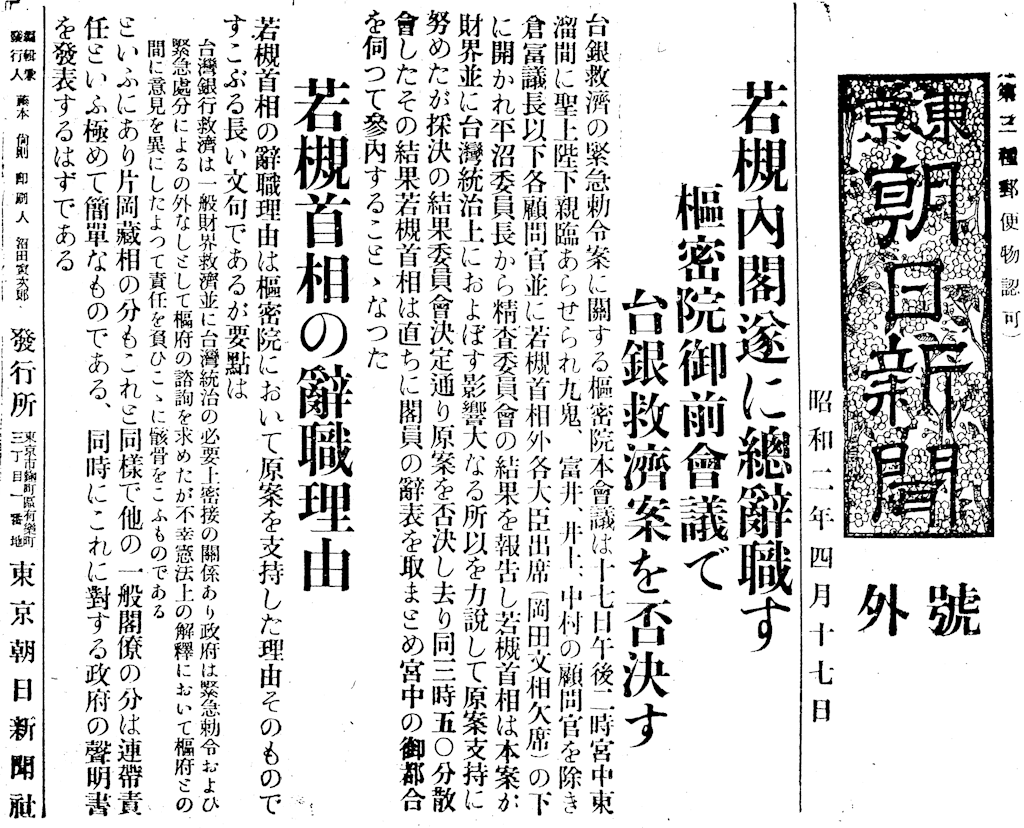 第三種郵便物認可）
東京朝日新聞
號外
昭和二年四月十七日
若槻內閣遂に總辭職す
樞密院御前會議で
台銀救濟案を否決す
台銀救濟の緊急勅令案に關する樞密院本會議は十七日午後二時宮中東
溜間に聖上陛下親臨あらせられ九鬼、富井、井上、中村の顧問官を除き
倉富議長以下各顧問官並に若槻首相外各大臣出席（岡田文相欠席）の下
に開かれ平沼委員長から精査委員會の結果を報告し若槻首相は本案が
財界並に台灣統治上におよぼす影響大なる所以を力說して原案支持に
努めたが採決の結果委員會決定通り原案を否決し去り同三時五〇分散
會したその結果若槻首相は直ちに閣員の辭表を取まとめ宮中の御都合
を伺つて參內することゝなつた
若槻首相の辭職理由
若槻首相の辭職理由は樞密院において原案を支持した理由そのもので
すこぶる長い文句であるが要點は
台灣銀行救濟は一般財界救濟並に台灣統治の必要上密接の關係あり政府は緊急勅令および
緊急處分によるの外なしとして樞府の諮詢を求めたが不幸憲法上の解釋において樞府との
間に意見を異にしたよつて責任を負ひこゝに骸骨をこふものである
といふにあり片岡藏相の分もこれと同樣で他の一般閣僚の分は連帶責
任といふ極めて簡單なものである、同時にこれに對する政府の聲明書
を發表するはずである
編輯兼
發行人 藤本尙則 印刷人 沼田寅次郞 發行所 東京市麴町區有樂町
三丁目一番地 東京朝日新聞社